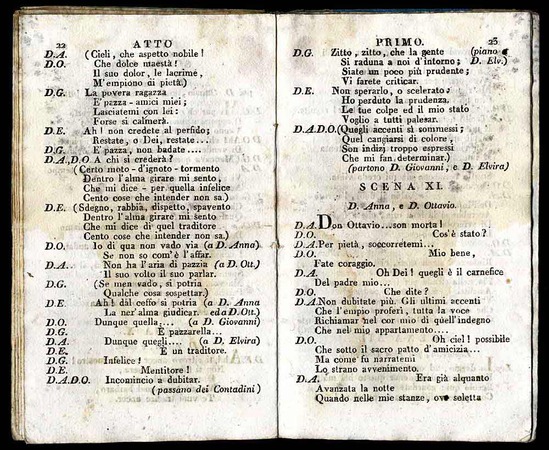 22 ATTO
D.A. (Cieli, che aspetto nobile!
D.O. Che dolce maestà!
Il suo dolor, le lacrime,
M'empiono di pietà.)
D.G. La povera ragazza
E' pazza - amici miei;
Lasciatemi con lei:
Forse si calmerà.
D.E. Ah! non credete al perfido;
Restate, o Dei, restate...
D.G. E' pazza, non badate....
D.A., D.O. A chi si crederà?
(Certo moto - d'ignoto - tormento
Dentro l'alma girare mi sento,
Che mi dice - per quella infelice
Cento cose che intender non sa.)
D.E. (Sdegno, rabbia, dispetto, spavento
Dentro l'alma girare mi sento,
Che mi dice di quel traditore
Cento cose che intender non sa.)
D.O. Io di qua non vado via (a D. Anna)
Se non so com'è l'affar.
D.A. Non ha l'aria di pazzia (a D. Ott.)
Il suo volto il suo parlar.
D.G. (Se men vado, si potria
Qualche cosa sospettar.)
D.E. Ah! dal ceffo si potria (a D. Anna
La ner'alma giudicar. ed a D. Ott.)
D.O. Dunque quella.... (a D. Giovanni)
D.G. E' pazzarella...
D.A. Dunque quegli.... (a D. Elvira)
D.E. E' un traditore.
D.G. Infelice!
D.E. Mentitore!
D.A.D.O. Incomincio a dubitar.
(passano dei Contadini)
PRIMO. 23
D.G. Zitto, zitto, che la gente (piano a
Si raduna a noi d'intorno; D. Elv.)
Siate un poco più prudente;
Vi farete criticar.
D.E. Non sperarlo, o scelerato;
Ho perduto la prudenza.
Le tue colpe ed il mio stato
Voglio a tutti palesar.
D.A.D.O. (Quegli accenti sì sommessi;
Quel cangiarsi di colore,
Son indizj troppo espressi
Che mi fan determinar.)
(partono D. Giovanni, e D. Elvira)
SCENA XI.
D. Anna, e D. Ottavio.
D.A. Don Ottavio...son morta!
D.O. Cos'è stato?
D.A. Per pietà, soccorretemi...
D.O. Mio bene,
Fate coraggio.
D.A. Oh Dei! quegli è il carnefice
Del padre mio...
D.O. Che dite?
D.A. Non dubitate più. Gli ultimi accenti
Che l'empio proferì, tutta la voce
Richiamar nel cor mio di quell'indegno
Che nel mio appartamento....
D.O. Oh ciel! possibile
Che sotto il sacro patto d'amicizia...
Ma come fu narratemi
Lo strano avvenimento.
D.A. Era già alquanto
Avanzata la notte
Quando nelle mie stanze, ove soletta